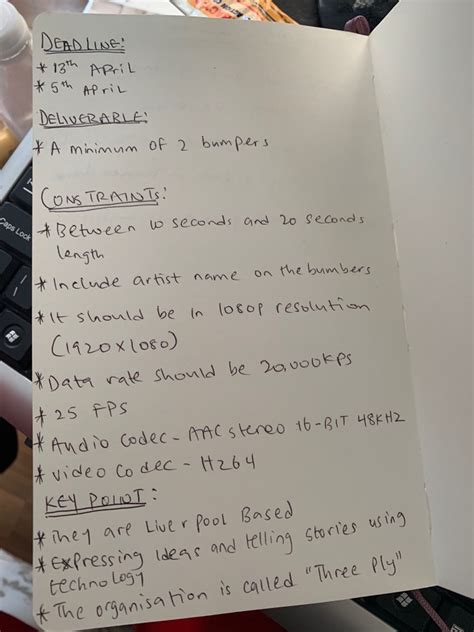 DEADLINE:
* 13th APRIL
* 5th APRIL
DELIVERABLE:
* A minimum of 2 bumpers
CONSTRAINTS:
* Between 10 seconds and 20 seconds
length
* Include artist name on the bumbers
* It should be in 1080p resolution
(1920x1080)
* Data rate should be 20,000KPS
* 25 FPS
* Audio codec - AAC stereo 16-BIT 48KHZ
* video codec - H264
KEY POINT:
* They are Liverpool Based
* Expressing Ideas and telling stories using
technology
* The organisation is called "Three Ply"
Caps Lock